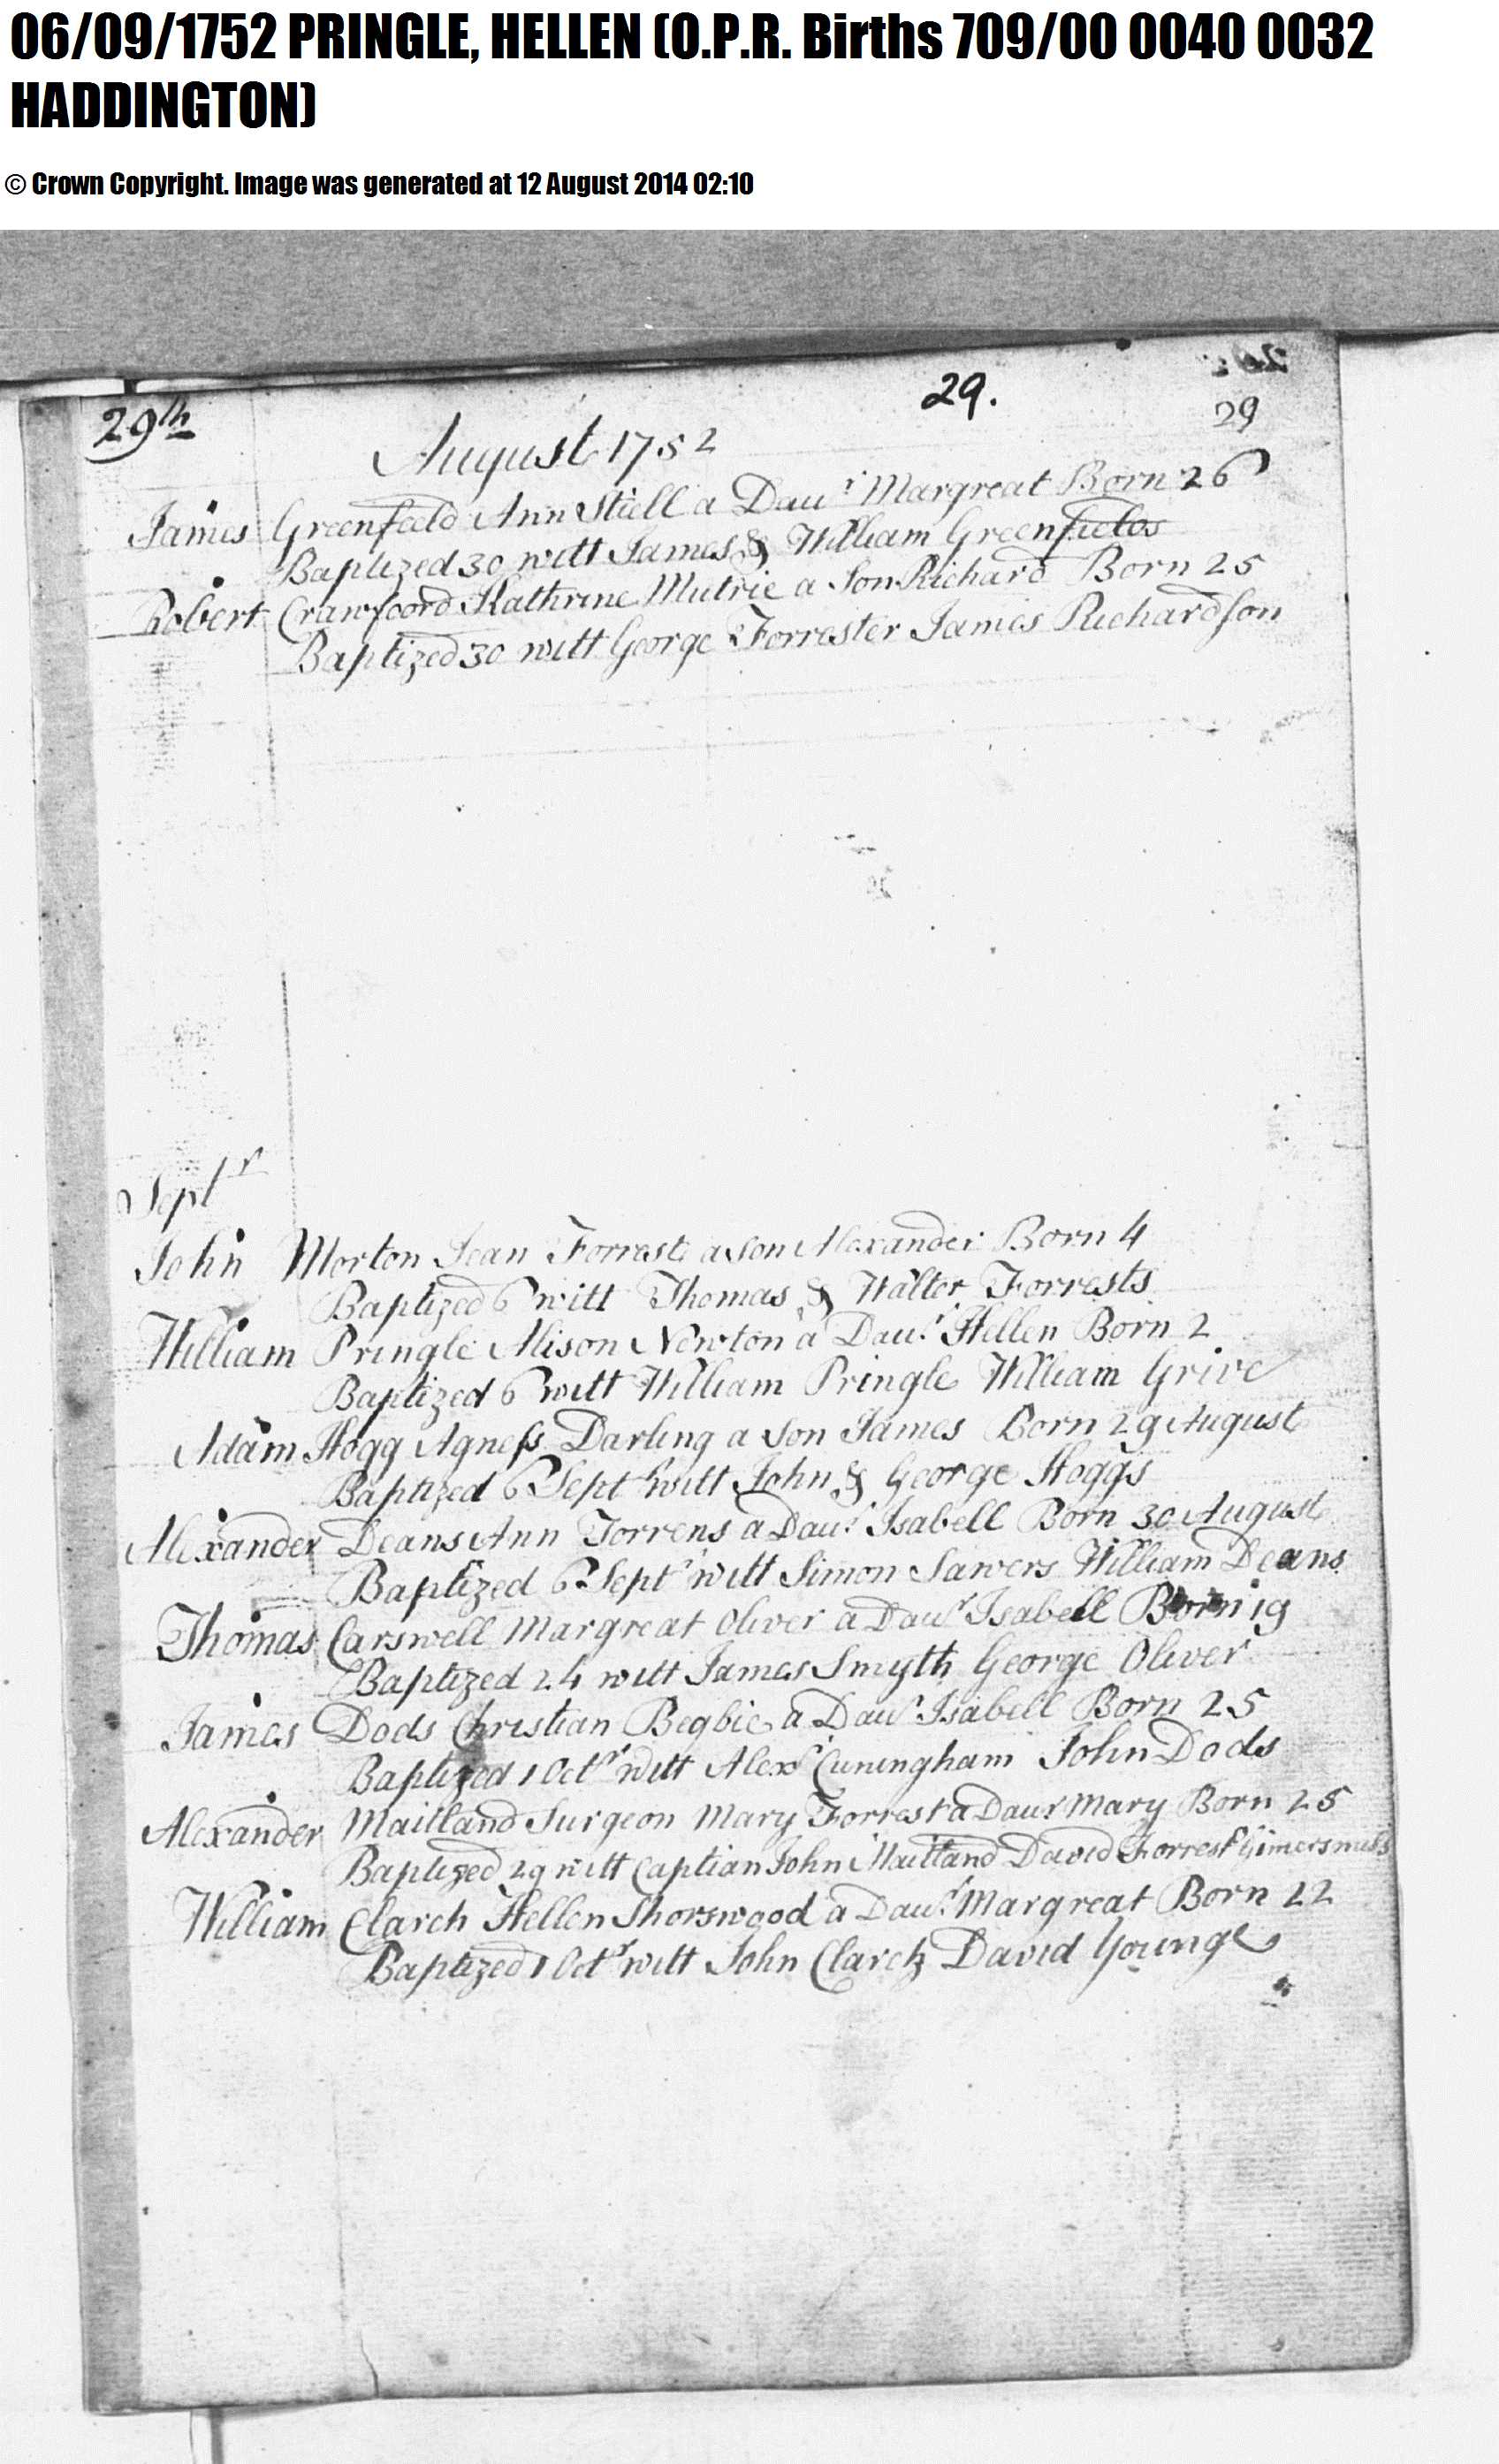 06/09/1752 PRINGLE, HELLEN (O.P.R. Births 709/00 0040 0032
HADDINGTON)
© Crown Copyright. Image was generated at 12 August 2014 02:10
29th 29.
29
August 1752
James Greenfeeld Ann Stiell a Daur Margreat Born 26
Baptized 30 witt James & William Greenfields
Robert Crawfoord Kathrine Mutrie a Son Richard Born 25
Baptized 30 witt George Forrester James Richardson
Septr
John Morton Jean Forrest a Son Alexander Born 4
Baptized 6 witt Thomas & Walter Forrests
William Pringle Alison Newton a Daur Hellen Born 2
Baptized 6 witt William Pringle William Grive
Adam Hogg Agness Darling a Son James Born 29 August
Baptized 6 Septr witt John & George Hoggs
Alexander Deans Ann Torrens a Daur Isabell Born 30 August
Baptized 6 Septr witt Simon Sawers William Deans
Thomas Carswell Margreat Oliver a Daur Isabell Born 19
Baptized 24 witt James Smyth George Oliver
James Dods Christian Begbie a Daur Isabell Born 25
Baptized 1 Octr witt Alexr Cuningham John Dods
Alexander Maitland Surgeon Mary Forrest a Daur Mary Born 25
Baptized 29 witt Captian John Maitland David Forrest Gimersmils
William Clarch Hellen Shorswood a Daur Margreat Born 22
Baptized 1 Octr witt John Clarck David Younge